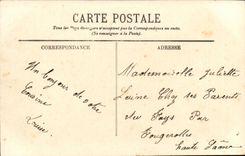 CARTE POSTALE
Tous les Pays étrangers n'acceptent pas la Correspondance au recto.
(Se renseigner à la Poste).
CORRESPONDANCE
ADRESSE
Un bonjour de votre
Cousine
Mademoiselle Juliette
Louine Chez ses Parents
Pays Par
Fougerolles
haute Saône